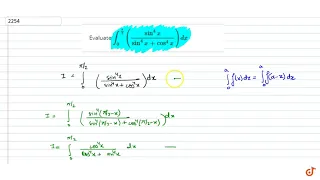 2254
Evaluate ∫₀^{π/2} (sin⁴x / (sin⁴x + cos⁴x)) dx
I = ∫₀^{π/2} (sin⁴x / (sin⁴x + cos⁴x)) dx ← ∫₀^a f(x) dx = ∫₀^a f(a-x) dx
I = ∫₀^{π/2} (sin⁴(π/2-x) / (sin⁴(π/2-x) + cos⁴(π/2-x))) dx
I = ∫₀^{π/2} cos⁴x / (cos⁴x + sin⁴x) dx —